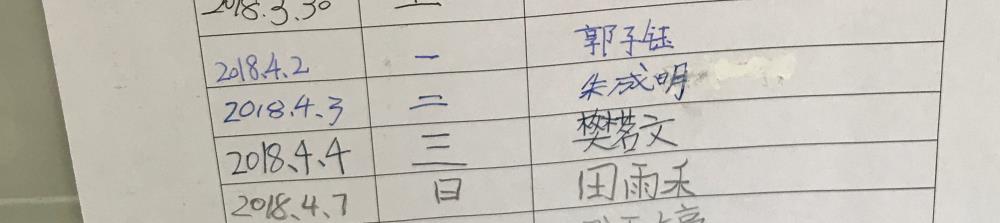 2018.3.30 五
2018.4.2 一 郭子钰
2018.4.3 二 朱成明
2018.4.4 三 樊茗文
2018.4.7 日 田雨禾